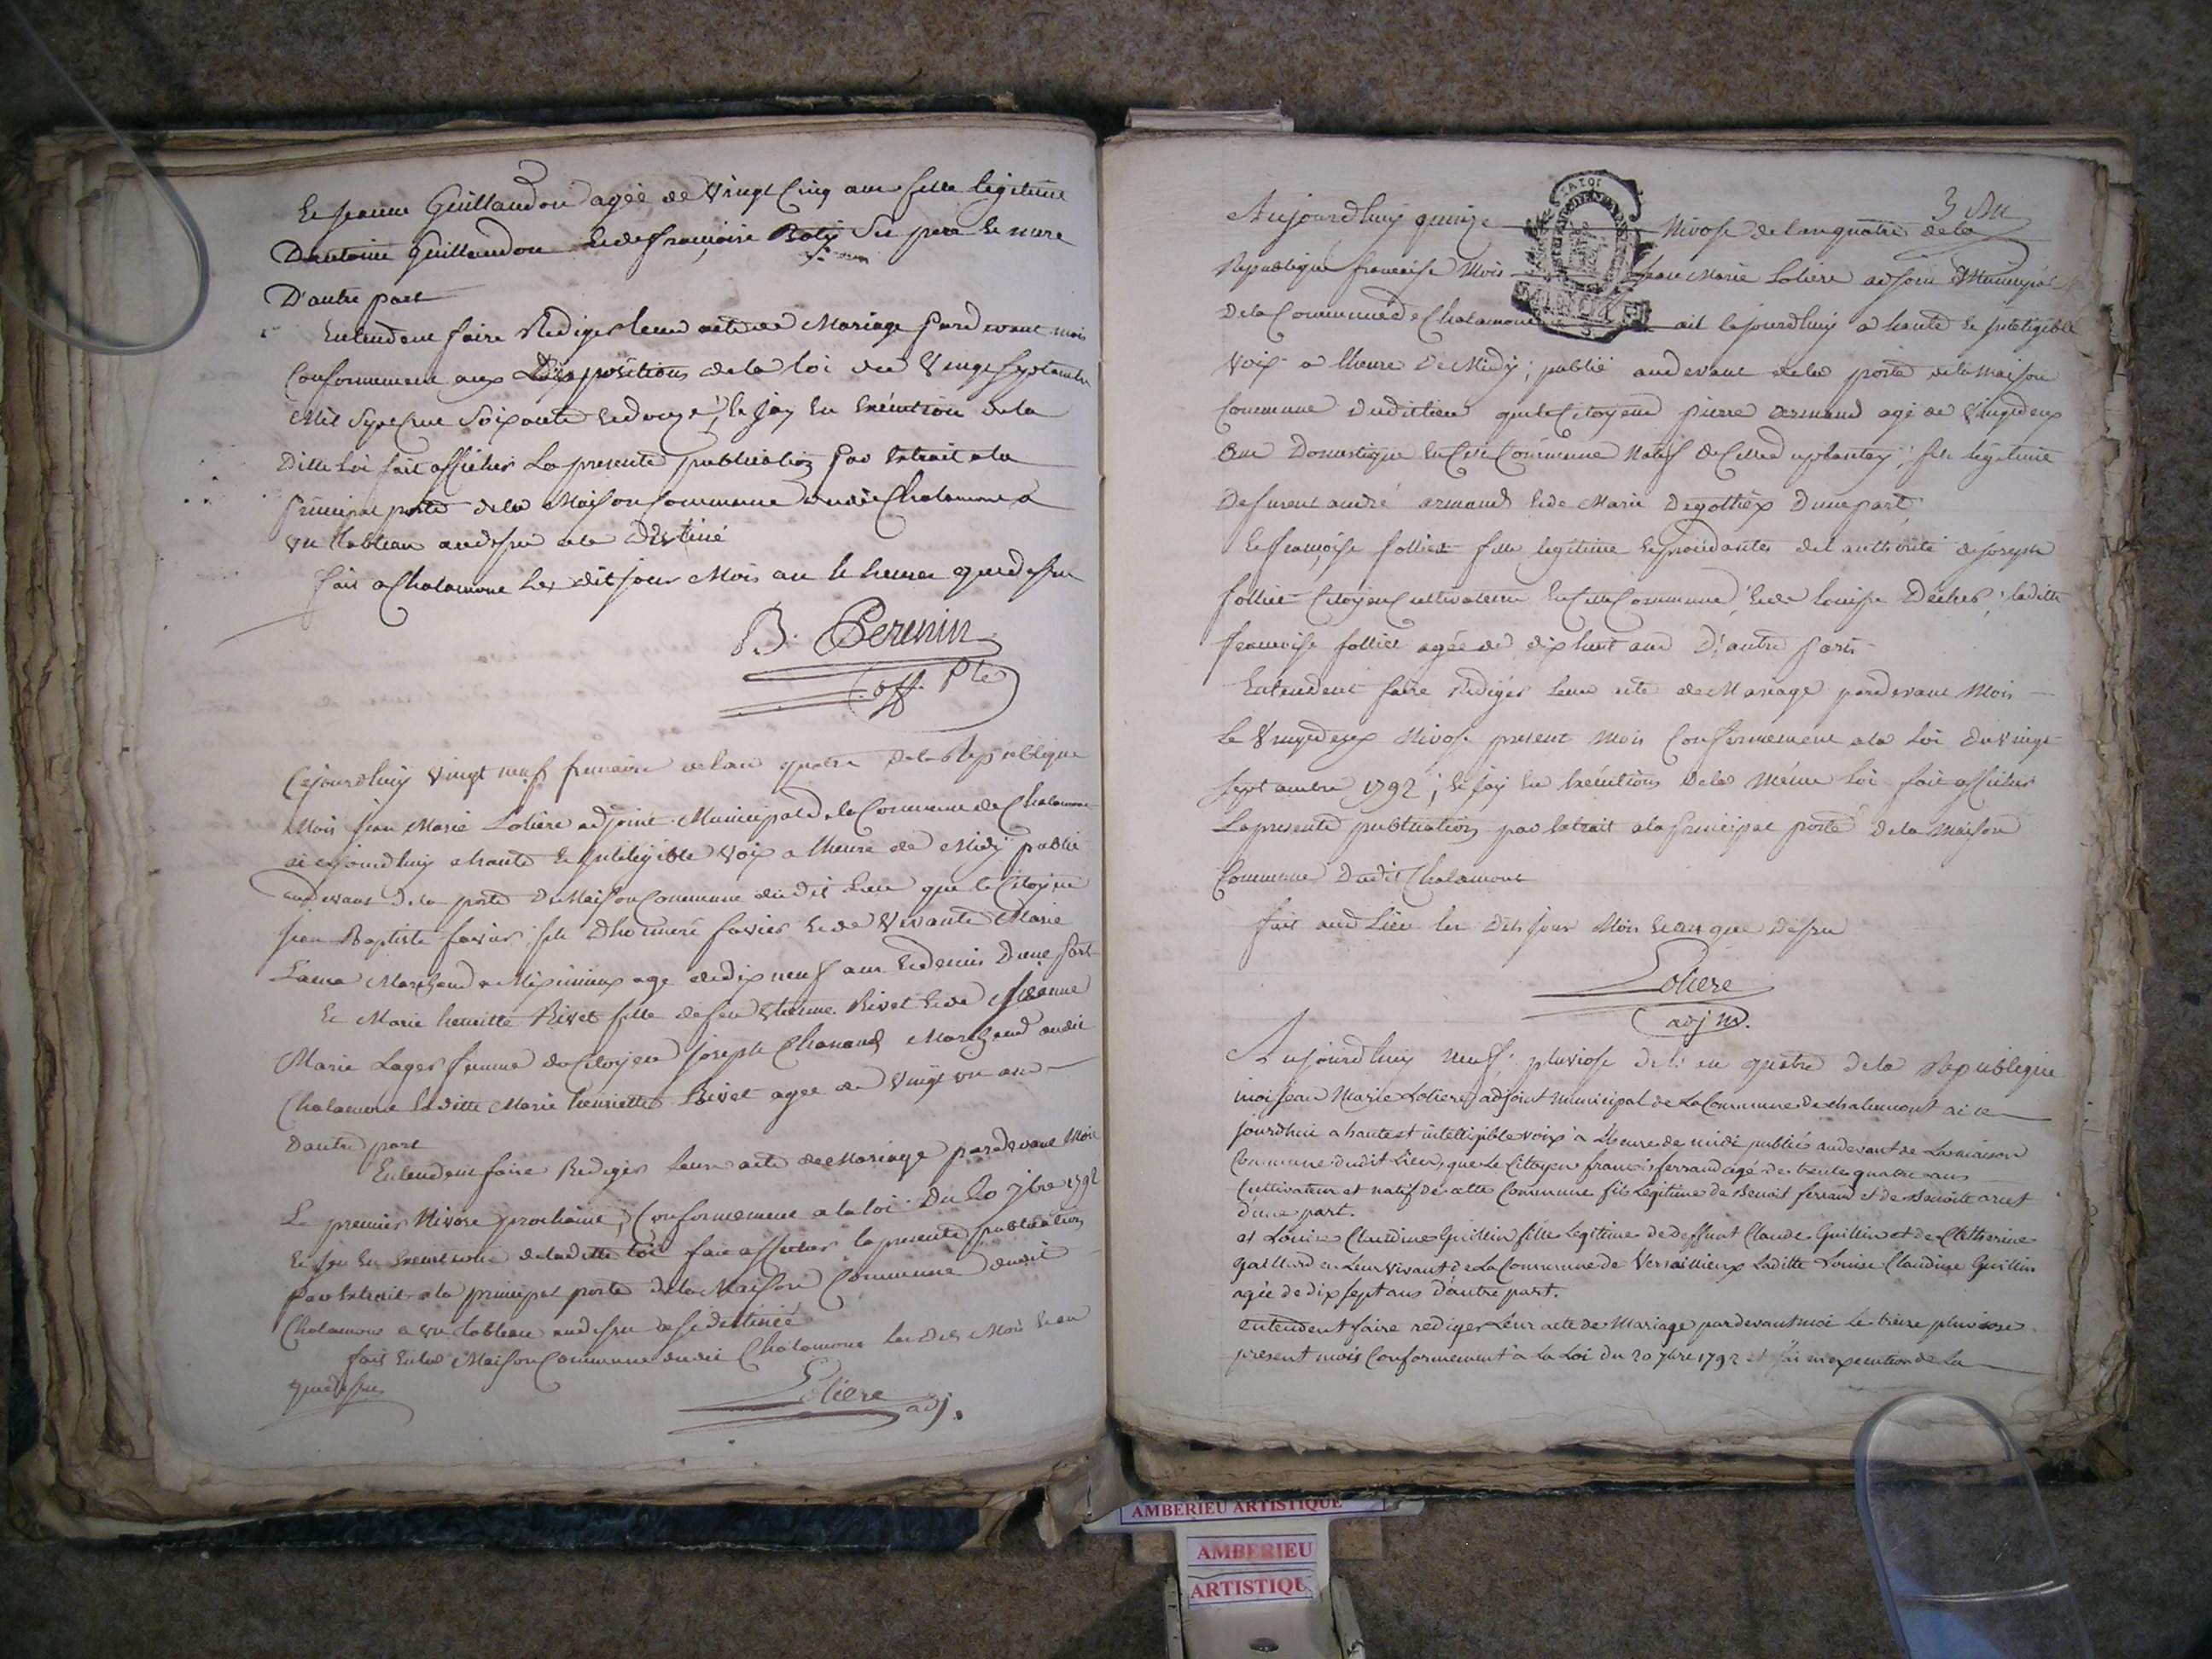 Et Jeanne Guillaudon agée de Vingt Cinq ans fille legitime
D'antoine Guillaudon et de françoise Ses pere et mere
D'autre part
Entendent faire Rediger leur acte de Mariage pard evant moi
Conformement aux Dispositions de la loi du Vingt septembre
Mil Sept Cent Soixante et douze ; et jay En Exécution de la
Ditte Loi fait afficher La presente publication par Extrait a la
Principal porte de la Maison Commune dudit Chalamont a
un tableau audessu a la Destiné
fait a Chalamont les dit jour Mois an et heure que dessu
B. Perenin
off. Ple
Cejourdhuy Vingt neuf frimaire de lan quatre de la Republique
Mois Jean Marie Loliere adjoint Municipal de la Commune de Chalamont
ai cejourdhuy a haute et Inteligible Voix a lheure de Midy publié
audevant de la porte de Maison Commune du dit Lieu que le Citoyen
Jean Baptiste favier fils Dhonneré favier et de Vivante Marie
Lama Marchand a Meximieux age de dix neuf ans et demis Dune part
Et Marie henriette Rivet fille de feu Etienne Rivet et de Jeanne
Marie Lager femme du Citoyen Joseph Chanaud Marchand audit
Chalamont Laditte Marie henriette Rivet agee de Vingt un an
Dautre part
Entendent faire Rediger Leur acte de Mariage pardevant Moi
Le premier Nivose prochaine, Conformement a la loi Du 20 7bre 1792
Et jai En Execution de laditte loi fait afficher la presente publication
par Extrait a la principal porte de la Maison Commune dudit
Chalamont a un tableau audessu a se destinée
fait En la Maison Commune dudit Chalamont les Dits Mois et an
que dessu
Loliere adj.
3 
Aujourdhuy quinze Nivose de lan quatre de la
Republique francaise Mois Jean Marie Loliere adjoin Municipal
De la Commune de Chalamont ait Cejourdhuy a haute et Inteligible
Voix a lheure De Midy ; publié audevant de la porte de la Maison
Commune dudit lieu que le Citoyen pierre armand agé de Vingt deux
Ans Domestique En Cette Commune Natif de Celle du plantay ; fils légitime
Defunt andré armand et de Marie Degottiex Dune part,
Et françoise follies fille legitime de l authorité de Joseph
follies Citoyen Cultivateur En Cette Commune, et de louise Decher ; laditte
francoise follies agée de dix huit ans D'autre part
Entendent faire Rediger leur acte de Mariage pardevant Mois
Le Vingt deux Nivose present Mois Conformement a la Loi du Vingt
Septembre 1792 ; et jay En Exécutions de la Même loi fait afficher
La presente publication par Extrait a la Principal porte de la Maison
Commune Dudit Chalamont
fait aud Lieu les Dits jour Mois et an que Dessu
Loliere
adj M.
Aujourdhuy Neuf pluviose de l'an quatre de la Republique
moi jean Marie Loliere adjoint municipal de La Commune de chalamont ai ce
jourdhui a haute et intelligible voix à L'heure de midi publié audevant de La maison
Commune dudit Lieu, que Le Citoyen francois ferrand agé de trente quatre ans
Cultivateur et natif de cette Commune fils Légitime de Benoit ferrand et de Benoite aruet
d'une part.
et Louise Claudine Guillin fille Legitime de deffunt Claude Guillin et de Catherine
gaillard en Leur vivant de La Commune de Versaillieux Laditte Louise Claudine Guillin
agée de dix sept ans d'autre part.
entendent faire rediger Leur acte de Mariage par devant moi Le treize pluviose
présent mois Conformement à La Loi du 20 7bre 1792 et j'ai en execution de La
AMBERIEU ARTISTIQUE
AMBERIEU
ARTISTIQU